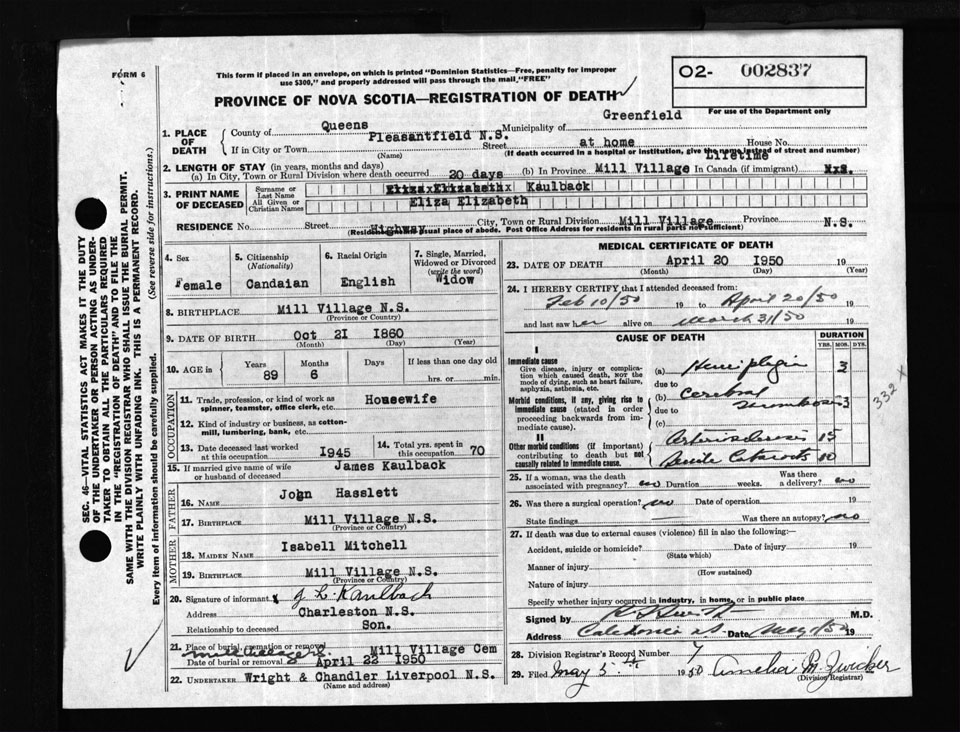 FORM 6
This form if placed in an envelope, on which is printed "Dominion Statistics—Free, penalty for improper
use $300," and properly addressed will pass through the mail, "FREE"
PROVINCE OF NOVA SCOTIA—REGISTRATION OF DEATH
O2- 002837
For use of the Department only
1. PLACE OF DEATH
County of Queens Municipality of Greenfield
If in City or Town Pleasantfield N.S. Street at home House No.
(Name) (If death occurred in a hospital or institution, give the name instead of street and number)
2. LENGTH OF STAY (in years, months and days) Lifetime
(a) In City, Town or Rural Division where death occurred 20 days (b) In Province Mill Village In Canada (if immigrant) N.S.
3. PRINT NAME OF DECEASED
Surname or Last Name Eliza Elizabeth Kaulback
All Given or Christian Names Eliza Elizabeth
RESIDENCE No. Street Highway City, Town or Rural Division Mill Village Province N.S.
(Residence is usual place of abode. Post Office Address for residents in rural parts not sufficient)
4. Sex Female
5. Citizenship (Nationality) Candaian
6. Racial Origin English
7. Single, Married, Widowed or Divorced (write the word) Widow
8. BIRTHPLACE Mill Village N.S.
(Province or Country)
9. DATE OF BIRTH Oct 21 1860
(Month) (Day) (Year)
10. AGE in Years 89 Months 6 Days If less than one day old hrs. or min.
OCCUPATION
11. Trade, profession, or kind of work as spinner, teamster, office clerk, etc. Housewife
12. Kind of industry or business, as cotton-mill, lumbering, bank, etc.
13. Date deceased last worked at this occupation 1945
14. Total yrs. spent in this occupation 70
15. If married give name of wife or husband of deceased James Kaulback
FATHER
16. NAME John Hasslett
17. BIRTHPLACE Mill Village N.S.
(Province or Country)
MOTHER
18. MAIDEN NAME Isabell Mitchell
19. BIRTHPLACE Mill Village N.S.
(Province or Country)
20. Signature of informant Kaulback
Address Charleston N.S.
Relationship to deceased Son.
21. Place of burial, cremation or removal Mill Village Cem
Date of burial or removal April 22 1950
22. UNDERTAKER Wright & Chandler Liverpool N.S.
(Name and address)
MEDICAL CERTIFICATE OF DEATH
23. DATE OF DEATH April 20 1950 19
(Month) (Day) (Year)
24. I HEREBY CERTIFY that I attended deceased from:
Feb 10/50 19 to April 20/50 19
and last saw her alive on March 31/50 19
CAUSE OF DEATH
DURATION
YRS. MOS. DYS.
I
Immediate cause
Give disease, injury or complication which caused death, NOT the mode of dying, such as heart failure, asphyxia, asthenia, etc.
(a) Hemiplegia 3
due to
Morbid conditions, if any, giving rise to immediate cause (stated in order proceeding backwards from immediate cause).
(b) Cerebral Thrombosis 3
due to
(c)
II
Other morbid conditions (if important) contributing to death but not causally related to immediate cause.
Arteriosclerosis 15
Senile Cataracts 10
332 x
25. If a woman, was the death associated with pregnancy? no Duration weeks. Was there a delivery? no
26. Was there a surgical operation? no Date of operation 19
State findings Was there an autopsy? no
27. If death was due to external causes (violence) fill in also the following:—
Accident, suicide or homicide? Date of injury 19
(State which)
Manner of injury
(How sustained)
Nature of injury
Specify whether injury occurred in industry, in home, or in public place
Signed by M.D.
Address Caledonia N.S. Date May 1/50 19
28. Division Registrar's Record Number 7
29. Filed May 5th 1950 Amelia M. Zwicker
(Division Registrar)
SEC. 46—VITAL STATISTICS ACT MAKES IT THE DUTY
OF THE UNDERTAKER OR PERSON ACTING AS UNDER-
TAKER TO OBTAIN ALL THE PARTICULARS REQUIRED
IN THE "REGISTRATION OF DEATH" AND TO FILE THE
SAME WITH THE DIVISION REGISTRAR WHO SHALL ISSUE THE BURIAL PERMIT.
WRITE PLAINLY WITH UNFADING INK. THIS IS A PERMANENT RECORD.
Every item of information should be carefully supplied. (See reverse side for instructions.)